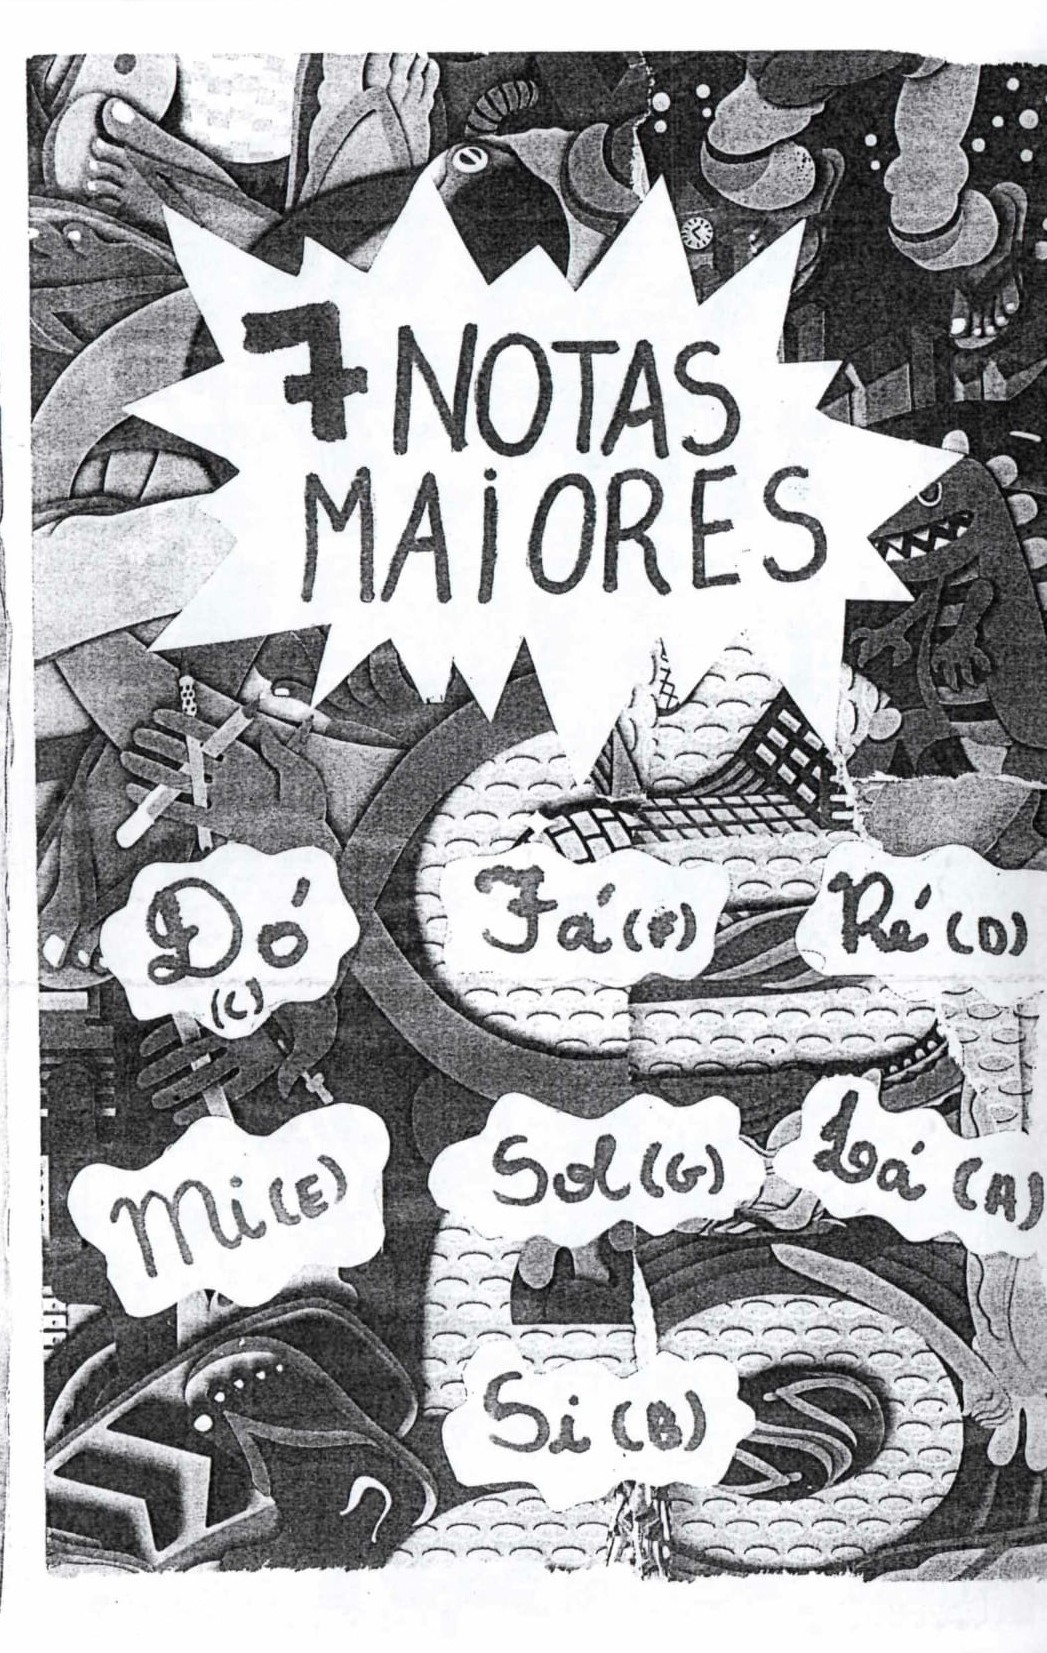 7 NOTAS
MAiORES
Dó
(C)
Fá (F)
Ré (D)
Mi (E)
Sol (G)
Lá (A)
Si (B)